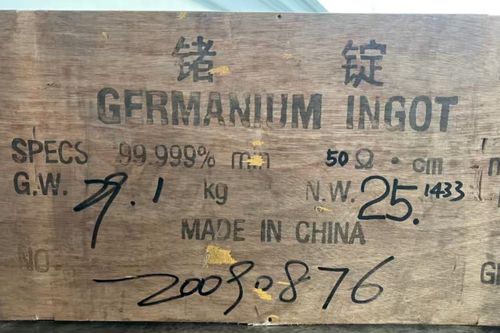 锗 锭
GERMANIUM INGOT
SPECS 99.999% min 50Ω·cm
G.W. 29.1 kg N.W. 25.1433
MADE IN CHINA
NO.
20090876